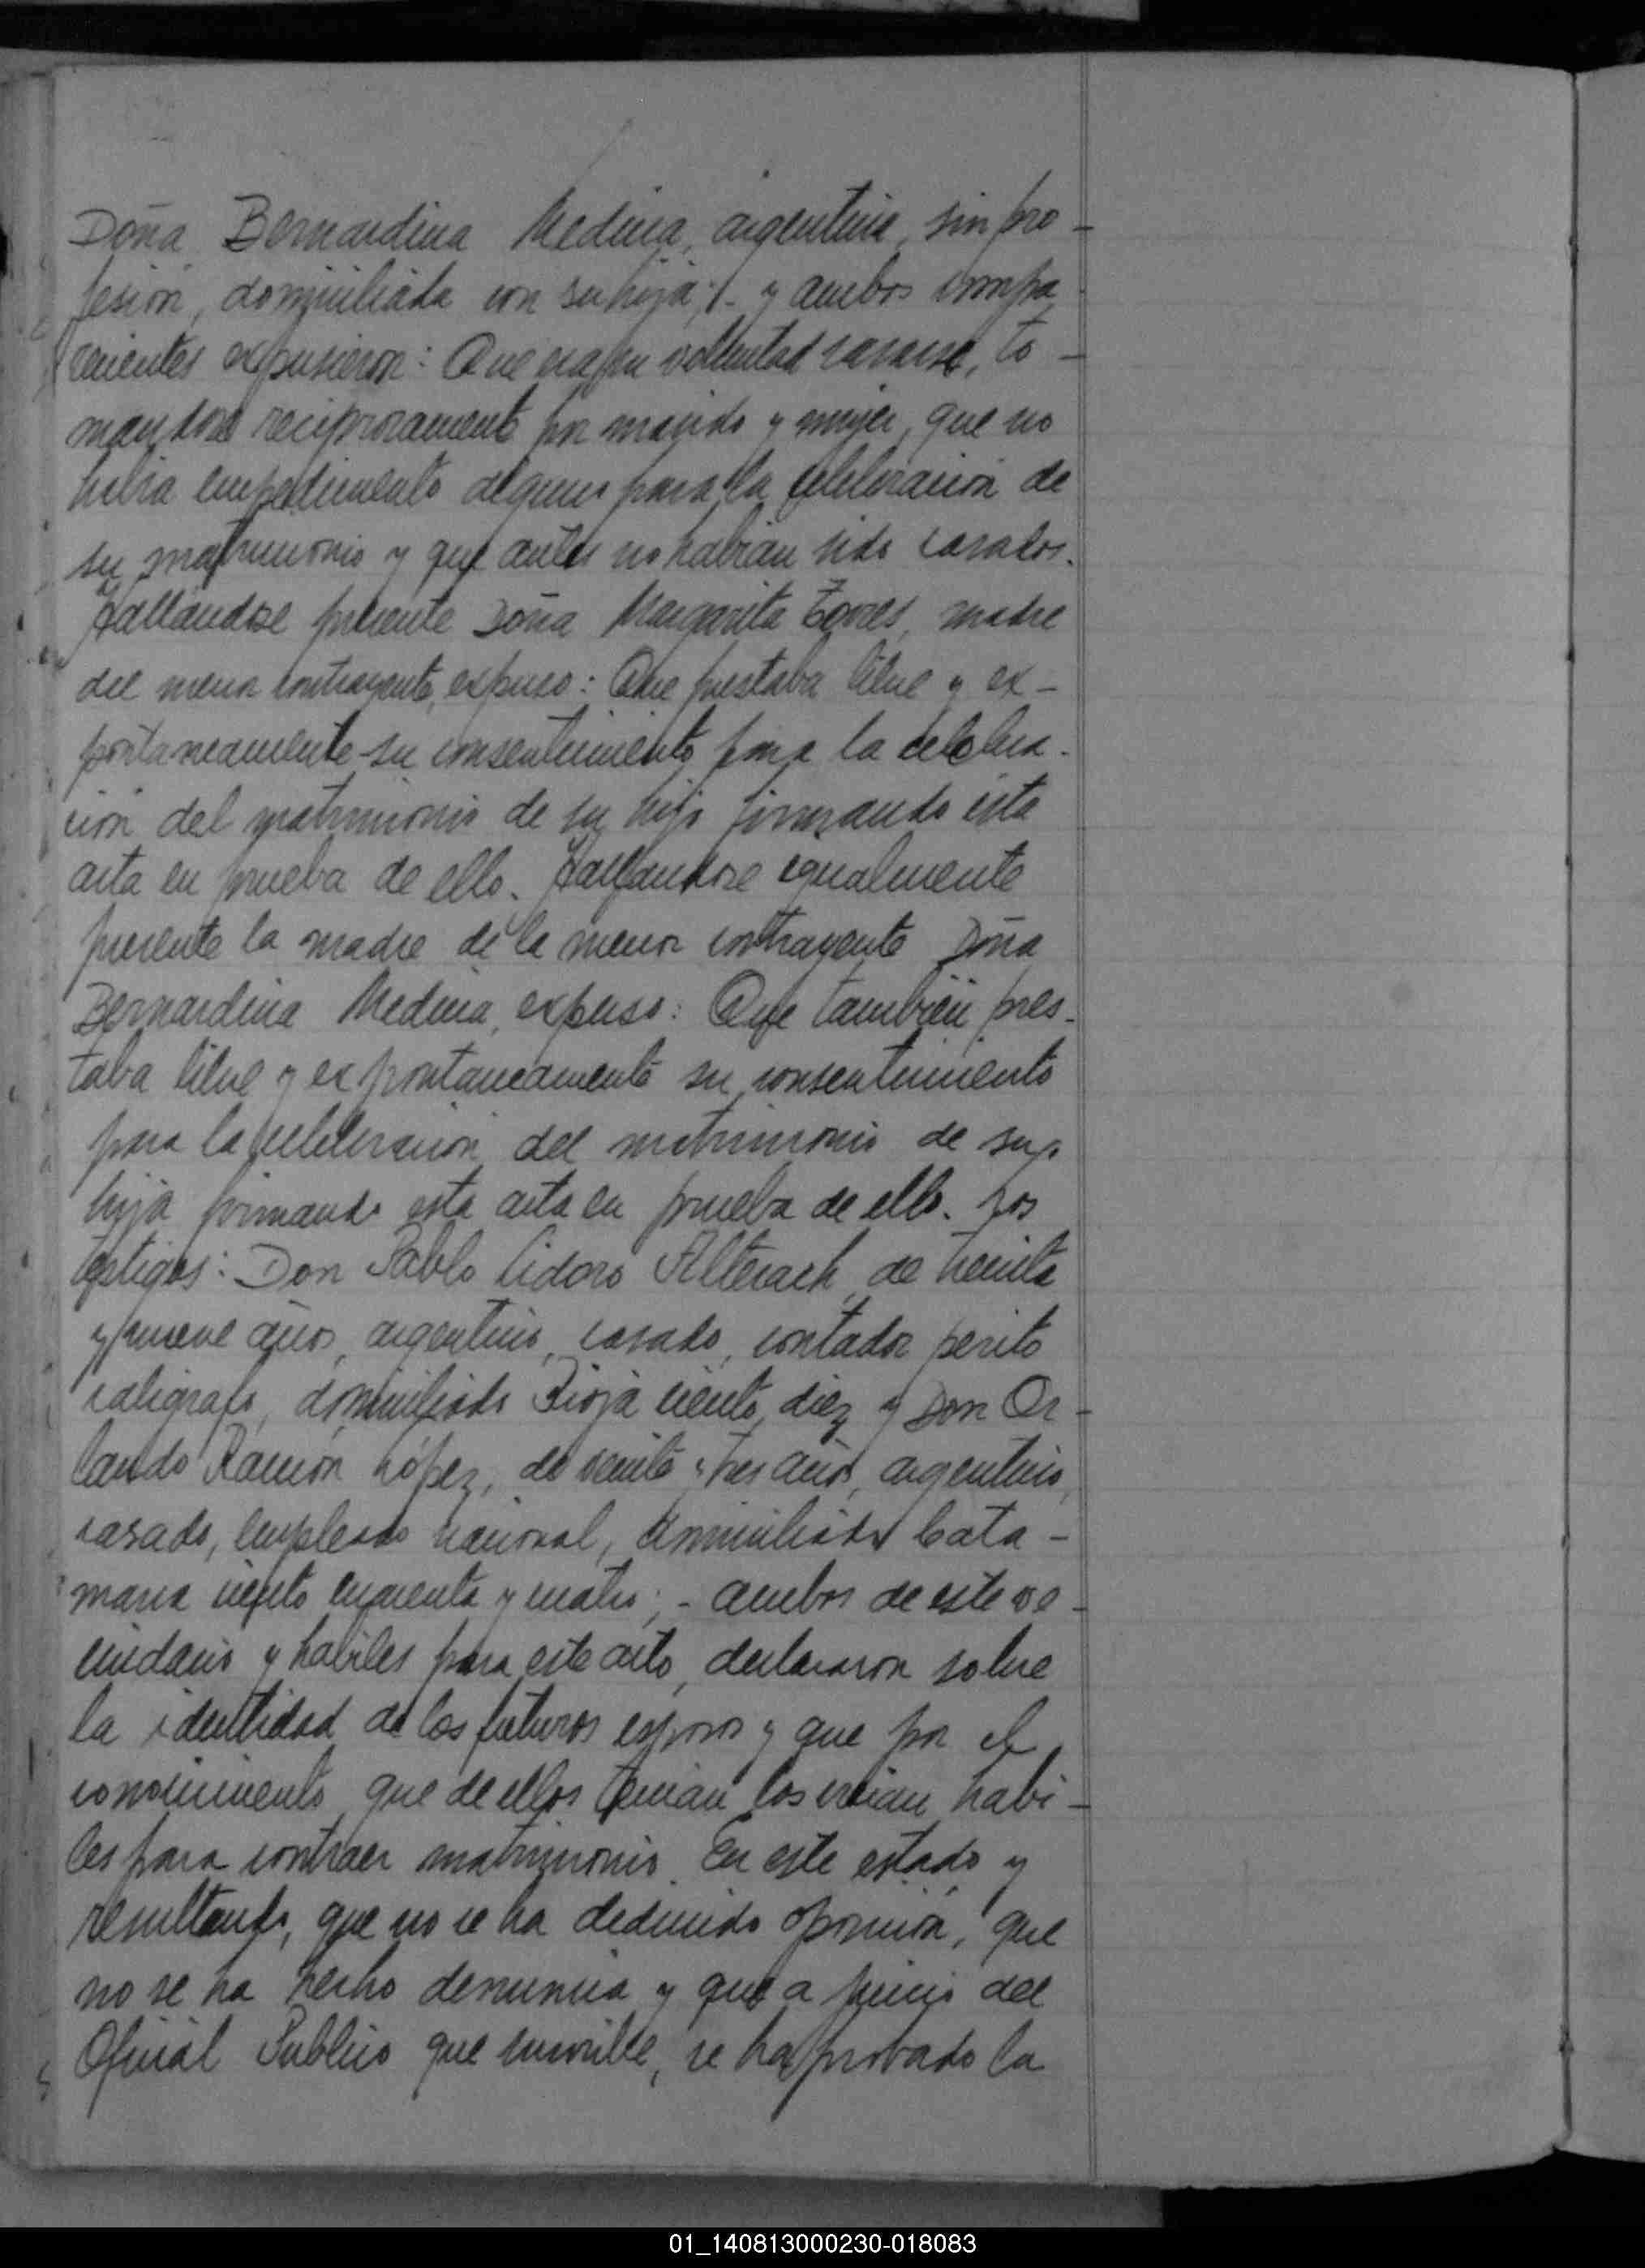 Doña Bernardina Medina, argentina, sin pro-
fesión, domiciliada con su hija;/- y ambos compa-
recientes expusieron: Que era su voluntad casarse, to-
mandose reciprocamente por marido y mujer, que no
habia impedimento alguno para la celebración de
su matrimonio y que antes no habian sido casados.
Hallándose presente Doña Margarita Torres, madre
del menor contrayente, expuso: Que prestaba libre y ex-
pontaneamente su consentimiento para la celebra-
ción del matrimonio de su hijo firmando esta
acta en prueba de ello. Hallandose igualmente
presente la madre de la menor contrayente Doña
Bernardina Medina, expuso: Que también pres-
taba libre y expontaneamente su consentimiento
para la celebración del matrimonio de su
hija firmando esta acta en prueba de ello. Los
testigos: Don Pablo Isidoro Alterach, de treinta
y nueve años, argentino, casado, contador perito
caligrafo, domiciliado Rioja ciento diez y Don Or-
lando Ramón López, de veinte y tres años, argentino,
casado, empleado nacional, domiciliado Cata-
marca ciento cuarenta y cuatro; - ambos de este ve-
cindario y habiles para este acto, declararon sobre
la identidad de los futuros esposos y que por el
conocimiento que de ellos tenian los creian habi-
les para contraer matrimonio. En este estado y
resultando, que no se ha deducido oposición, que
no se ha hecho denuncia y que a juicio del
Oficial Publico que suscribe, se ha probado la
01_140813000230-018083